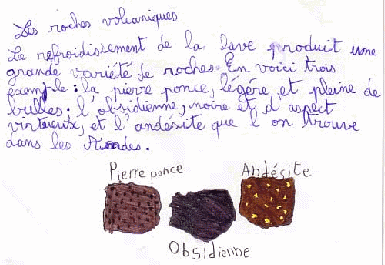 Les roches volcaniques
Le refroidissement de la lave produit une
grande variété de roches. En voici trois
exemple : la pierre ponce, légère et pleine de
bulles ; l'obsidienne, noire et d'aspect
vitreux, et l'andésite que l'on trouve
dans les Andes.
Pierre ponce
Andésite
Obsidienne